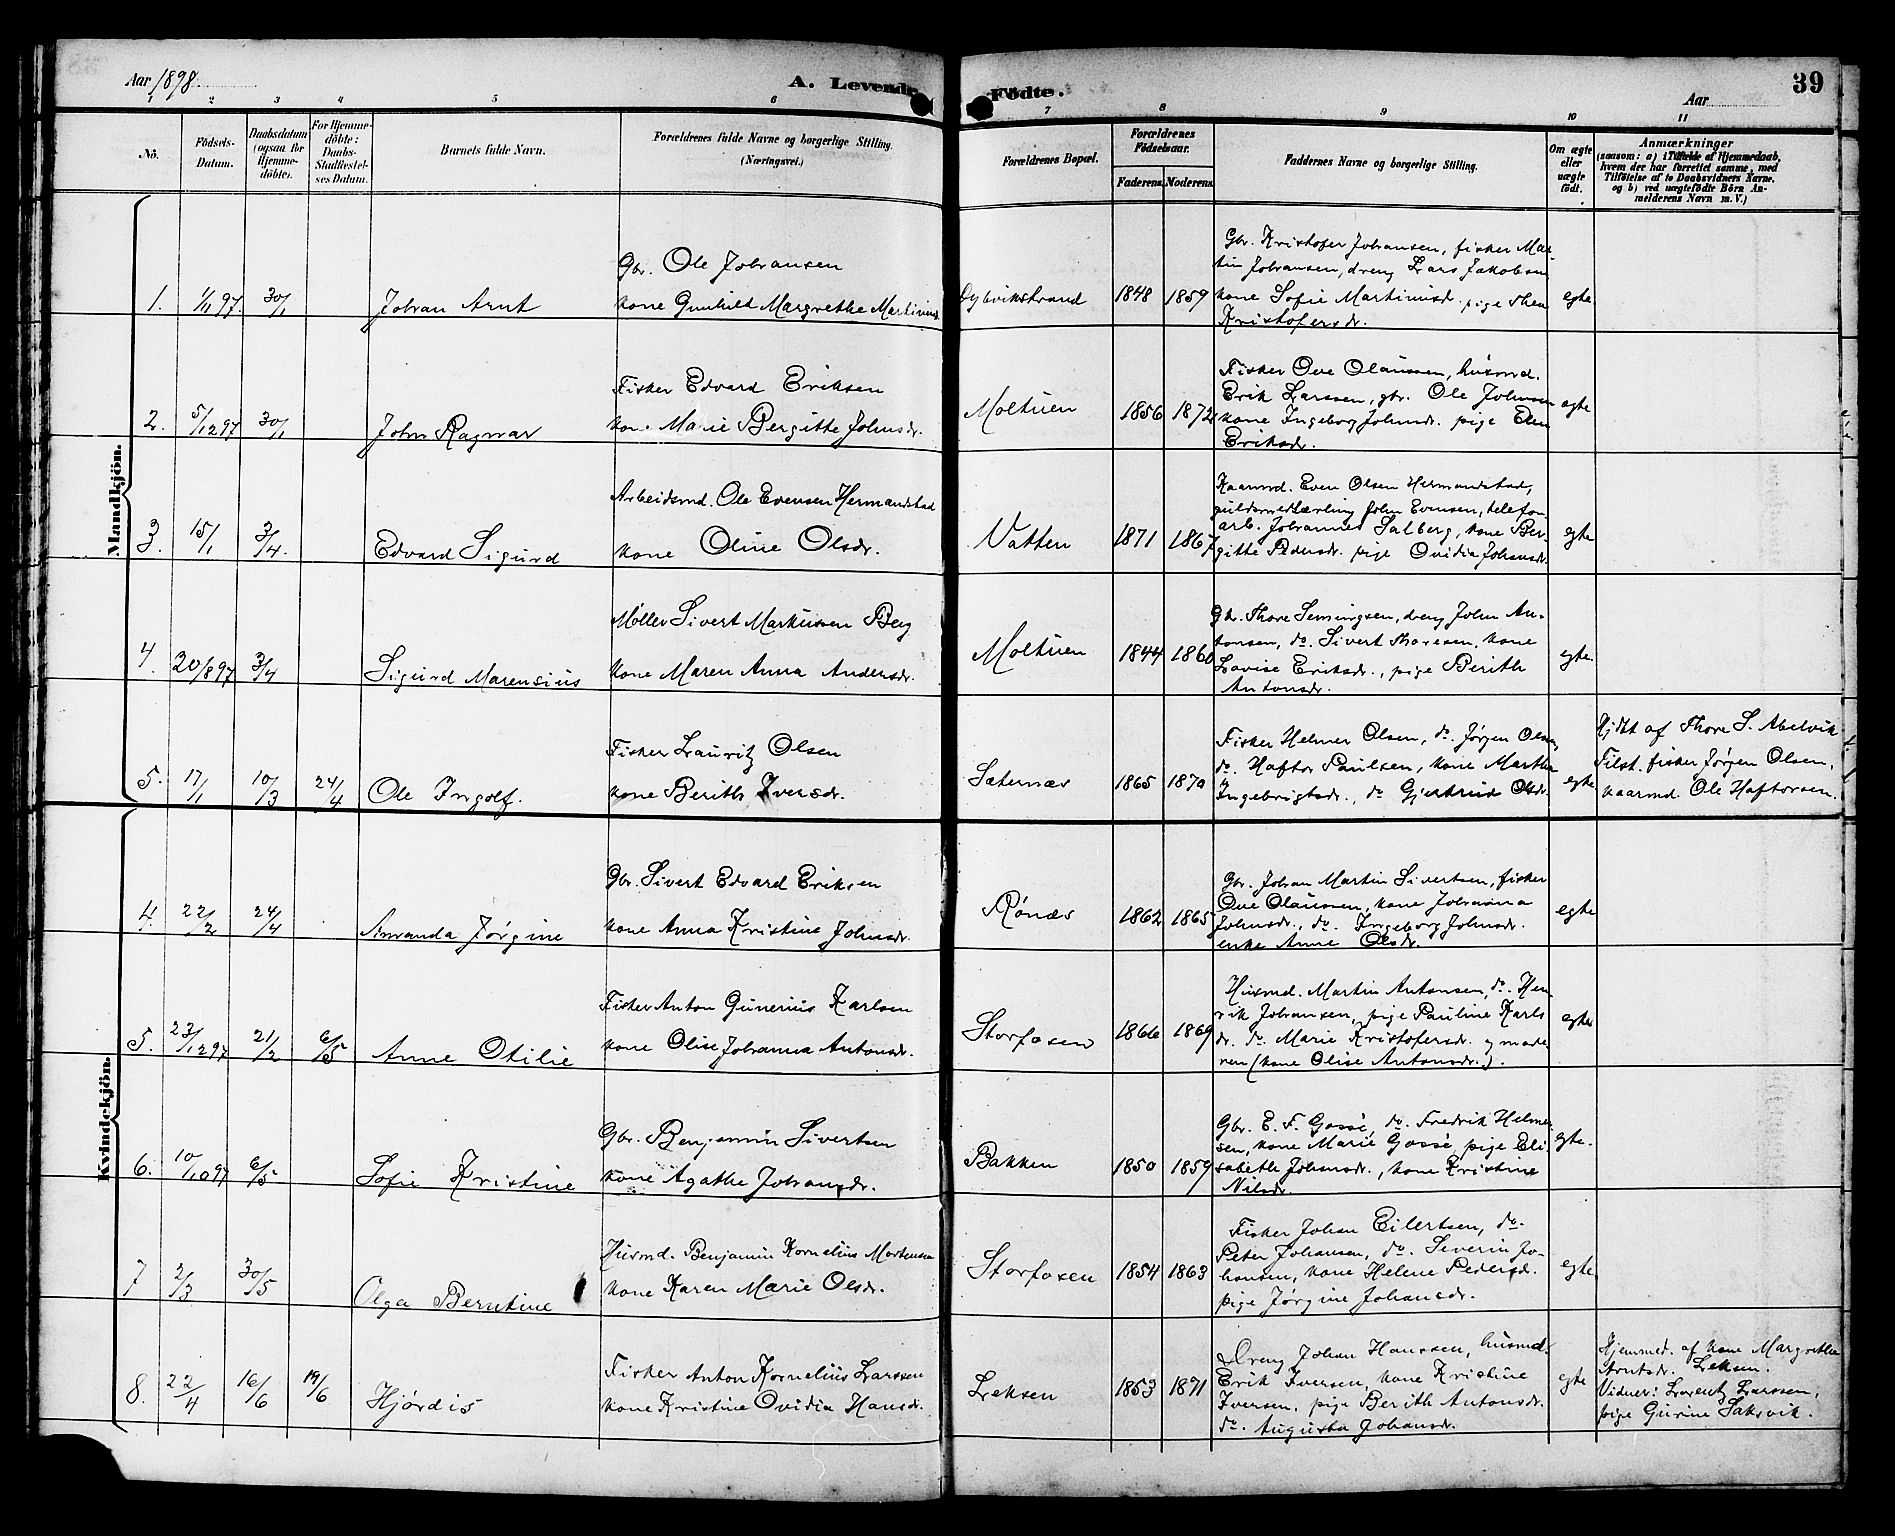 Aar 1898.
A. Levende Födte.
Aar
39
1 2 3 4 5 6 7 8 9 10 11
Nô.
Födsels-Datum.
Daabsdatum (ogsaa for Hjemmedöbte).
For Hjemmedöbte: Daabs-Stadfæstelses Datum.
Barnets fulde Navn.
Forældrenes fulde Navne og borgerlige Stilling. (Næringsvei.)
Forældrenes Bopæl.
Forældrenes Födselsaar.
Faderens. Moderens.
Faddernes Navne og borgerlige Stilling.
Om ægte eller uægte födt.
Anmærkninger
(saasom: a) i Tilfælde af Hjemmedaab,
hvem der har forrettet samme, med
Tilföielse af to Daabsvidners Navne,
og b) ved uægtefödte Börn An-
melderens Navn m. V.)
Mandkjön.
1. 1/11 97. 30/1 Johan Arnt
Gbr. Ole Johansen
kone Gunhild Margrethe Martinusd.
Dybvikstrand 1848 1859
Gbr. Kristofer Johansen, fisker Mar-
tin Johansen, dreng Lars Jakobsen
kone Sofie Martinusdr. pige Thea
Kristofersdr.
egte
2. 5/12 97 30/1 John Ragnar
Fisker Edvard Eriksen
kone Marie Bergitte Johnsdr.
Moltuen 1856 1872
Fisker Ove Olaussen, husmd.
Erik Larssen, gbr. Ole Johnsen
kone Ingeborg Johnsdr. pige Elen
Eriksdr.
egte
3. 15/1 3/4. Edvard Sigurd
Arbeidsmd. Ole Evensen Hermanstad
kone Oline Olsdr.
Vatten 1871 1867
Kaarmd. Even Olsen Hermandstad,
guldsmedlærling John Evensen, telefon-
arb. Johannes Salberg, kone Ber-
gitte Pedersdr. pige Ovidia Johansdr.
egte
4. 20/8 97 3/4 Sigurd Marensius
Møller Sivert Markussen Berg
kone Maren Anna Andersdr.
Moltuen 1844 1860
Gbr. Thore Semingsen, dreng John An-
tonsen, do. Sivert Thoresen, kone
Lovise Eriksdr., pige Berith
Antonsdr.
egte.
5. 17/1 10/3 24/4 Ole Ingolf.
Fisker Lauritz Olsen
kone Berith Iversdr.
Sæternæs 1865 1870
Fisker Helmer Olsen, do. Jørgen Olsen,
do. Haftor Paulsen, kone Martha
Ingebrigtsdr., do Gjertrud Olsdr.
egte
Hjdbt af Thore S. Abelvik
Tilst. fisker Jørgen Olsen,
kaarmd. Ole Haftorsen.
Kvindekjön.
4. 22/2 24/4 Amanda Jørgine
Gbr. Sivert Edvard Eriksen
kone Anna Kristine Johnsdr.
Rönæs 1862 1865
Gbr. Johan Martin Sivertsen, fisker
Ove Olaussen, kone Johanna
Johnsdr., do. Ingeborg Johnsdr.
enke Anne Olsdr.
egte
5. 23/12 97 21/2 6/5 Anne Otilie
Fisker Anton Gunerius Karlsen
kone Olise Johanna Antonsdr.
Storfosen 1866 1869
Husmd. Martin Antonsen, do. Hen-
rik Johansen, pige Pauline Karls
dr. do. Marie Kristofersdr. og mode-
ren (kone Olise Antonsdr.).
egte
6. 10/10 97 6/5 Sofie Kristine
Gbr. Benjamin Sivertsen
kone Agathe Johansdr.
Bakken 1850 1859
Gbr. E. F. Gossé, do. Fredrik Helmer
sen, kone Marie Gossé, pige Eli-
sabeth Johnsdr., kone Kristine
Nilsdr.
egte.
7 2/3 30/5 Olga Berntine
Husmd. Benjamin Kornelius Mortensen
kone Karen Marie Olsdr.
Storfosen 1854 1863
Fisker Johan Eilertsen, do.
Peter Johansen, do. Severin Jo-
hansen, kone Helene Pedersd.
pige Jørgine Johansdr.
egte
8. 22/4 16/6 19/6 Hjørdis
Fisker Anton Kornelius Larssen
kone Kristine Ovidia Hansdr.
Leksen 1853 1871
Dreng Johan Hanssen, husmd.
Erik Iversen, kone Kristine
Iversen, pige Berith Antonsdr.
do. Augusta Johansdr.
egte
Hjemmed. af kone Margrethe
Arntsdr. Leksen.
Vidner: Lorentz Larssen,
pige Gurine Saksvik.